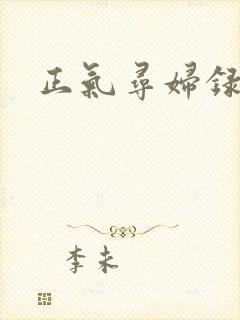 正氣尋婦録
李未